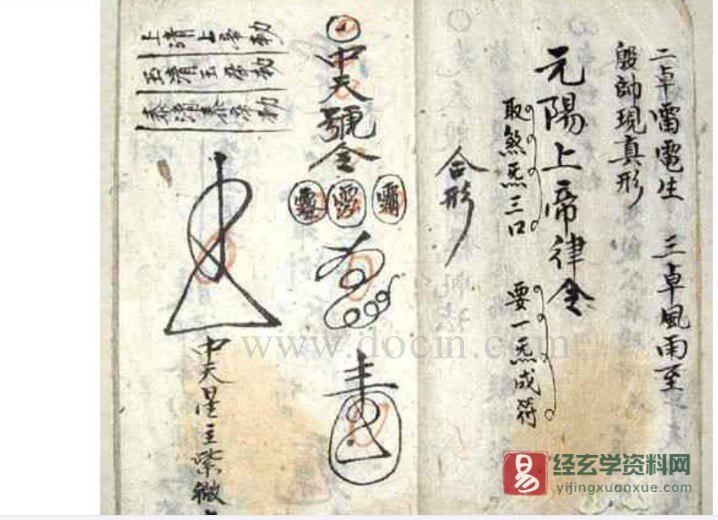 二卓雷電生 三卓風雨至
殷帥現真形
元陽上帝律令
取煞炁三口 要一炁成符
合形
中天號令
上清上帝勅
玉清玉帝勅
泰清泰帝勅
中天星主紫微
www.docin.com
易
经玄学资料网
yijingxuanxue.com